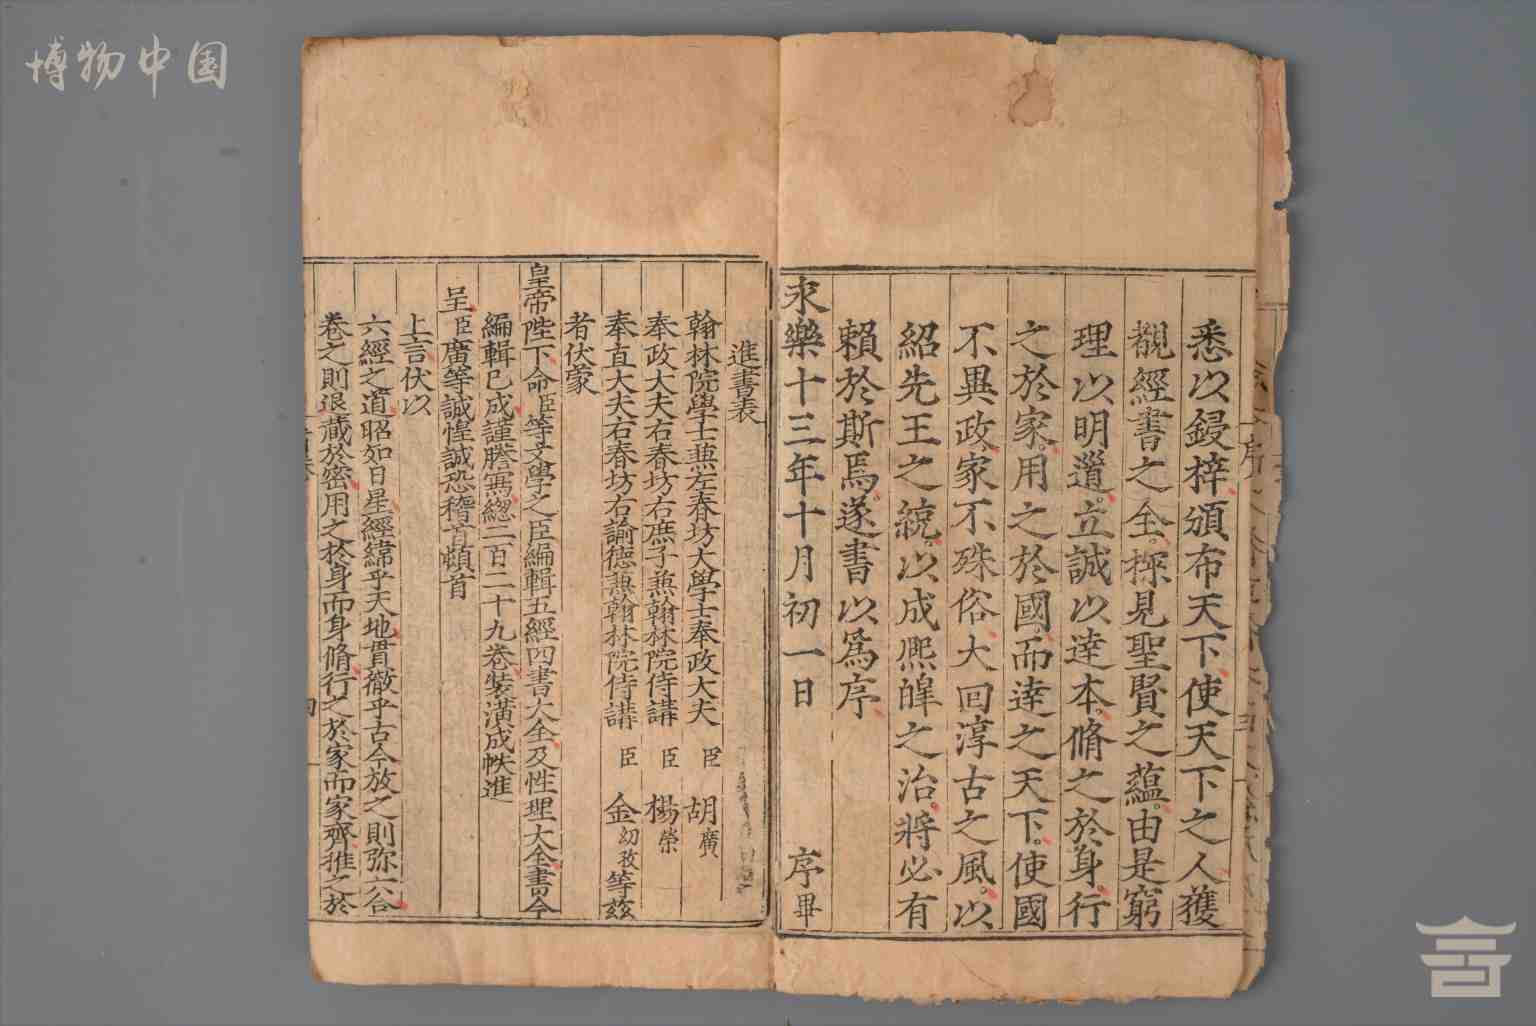 博物中国
悉以鋟梓頒布天下使天下之人獲
覩經書之全探見聖賢之蘊由是窮
理以明道立誠以達本脩之於身行
之於家用之於國而達之天下使國
不異政家不殊俗大回淳古之風以
紹先王之統以成熈皡之治將必有
賴於斯焉遂書以爲序
永樂十三年十月初一日 序畢
進書表
翰林院學士兼左春坊大學士奉政大夫 臣 胡廣
奉政大夫右春坊右庶子兼翰林院侍講 臣 楊榮
奉直大夫右春坊右諭德兼翰林院侍講 臣 金幼孜等兹
者伏蒙
皇帝陛下命臣等文學之臣編輯五經四書大全及性理大全書今
編輯已成謹謄寫緫二百二十九卷裝潢成帙進
呈臣廣等誠惶誠恐稽首頓首
上言伏以
六經之道昭如日星經緯乎天地貫徹乎古今放之則弥六合
卷之則退藏於密用之於身而身脩行之於家而家齊推之於